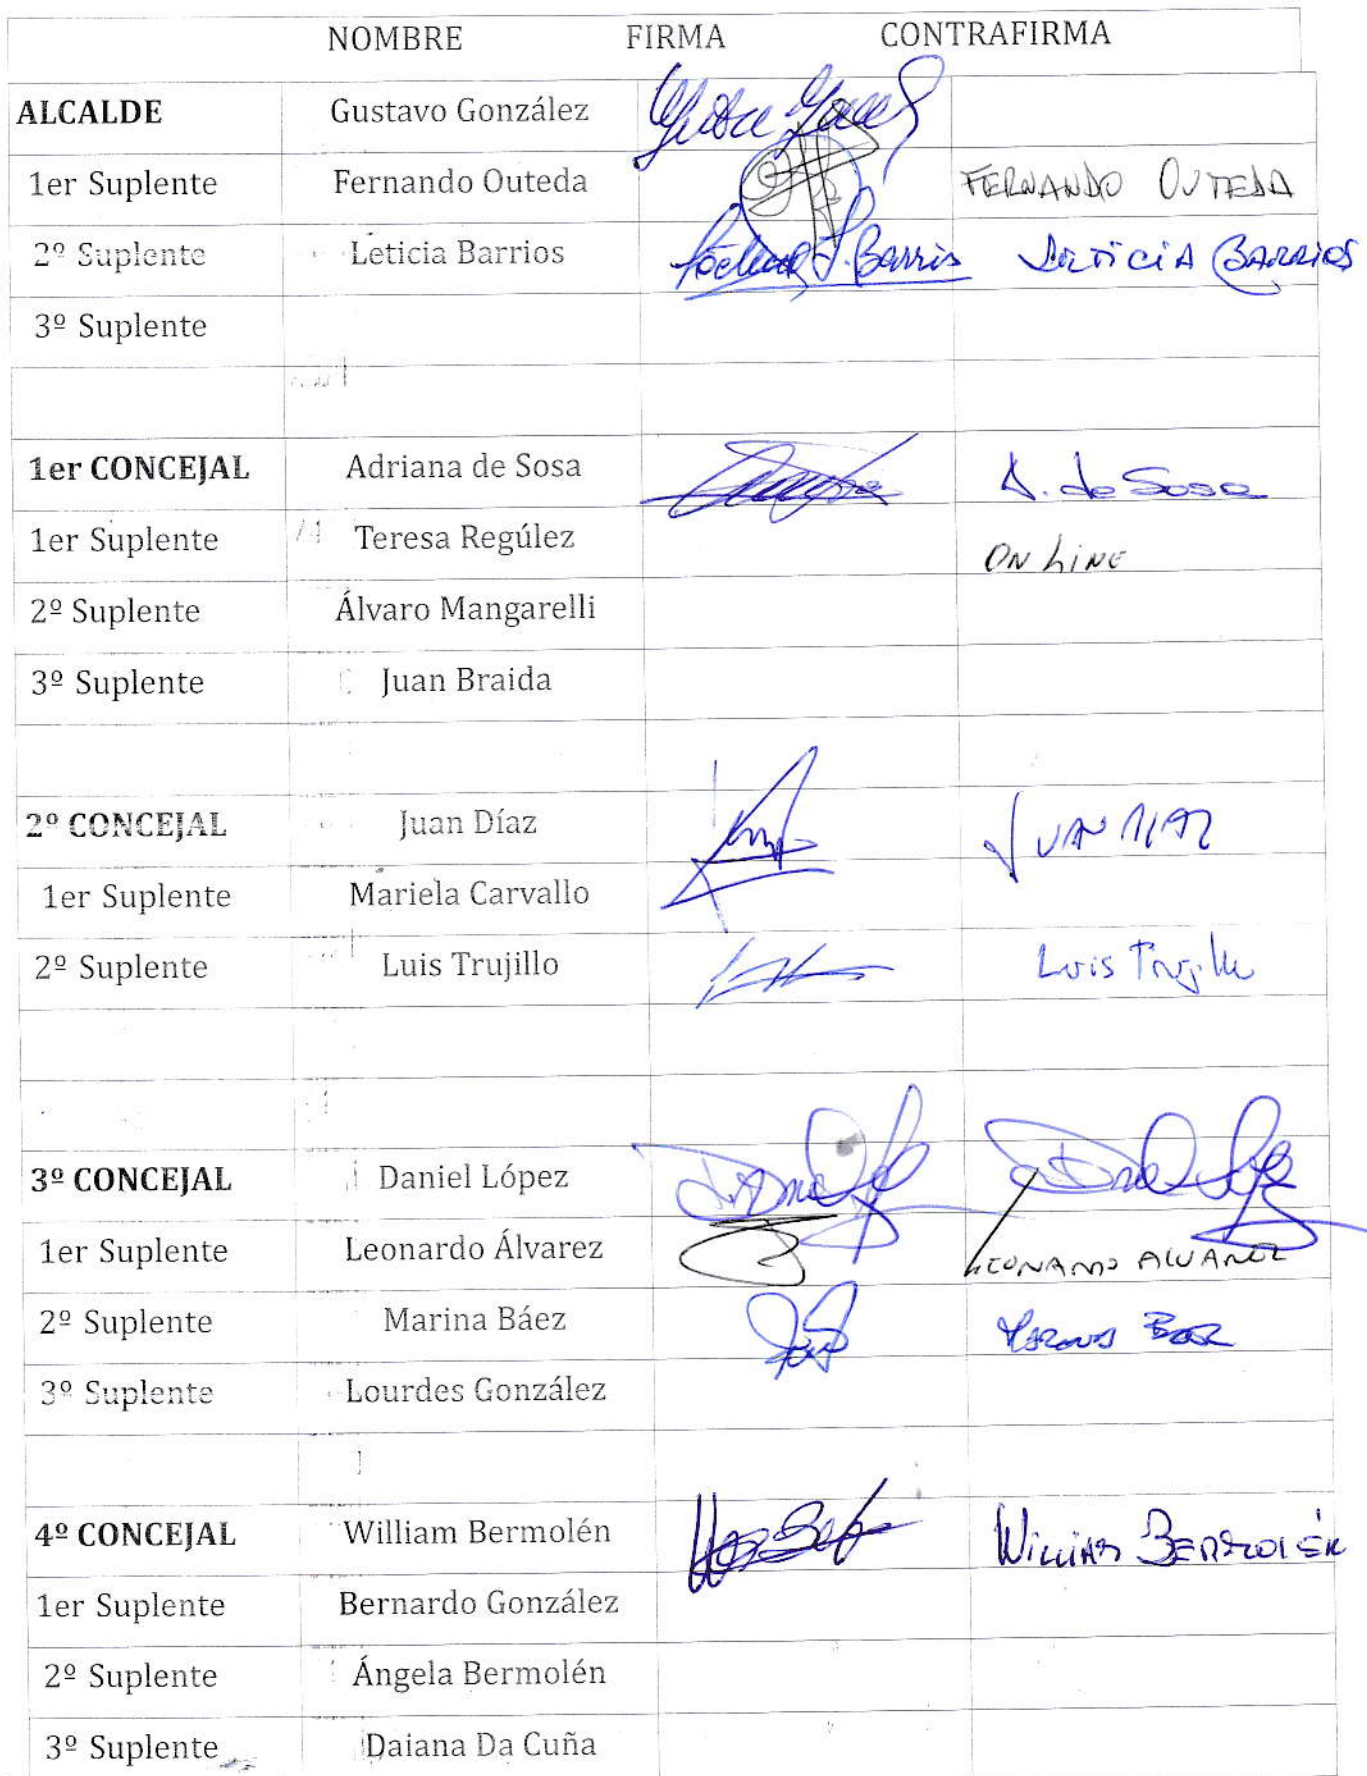 NOMBRE FIRMA CONTRAFIRMA
ALCALDE Gustavo González
1er Suplente Fernando Outeda FERNANDO OUTEDA
2º Suplente Leticia Barrios L. Barrios LETICIA BARRIOS
3º Suplente
1er CONCEJAL Adriana de Sosa A. de Sosa
1er Suplente Teresa Regúlez ON LINE
2º Suplente Álvaro Mangarelli
3º Suplente Juan Braida
2º CONCEJAL Juan Díaz JUAN DIAZ
1er Suplente Mariela Carvallo
2º Suplente Luis Trujillo Luis Trujillo
3º CONCEJAL Daniel López
1er Suplente Leonardo Álvarez LEONARDO ALVAREZ
2º Suplente Marina Báez
3º Suplente Lourdes González
4º CONCEJAL William Bermolén WILLIAM BERMOLÉN
1er Suplente Bernardo González
2º Suplente Ángela Bermolén
3º Suplente Daiana Da Cuña